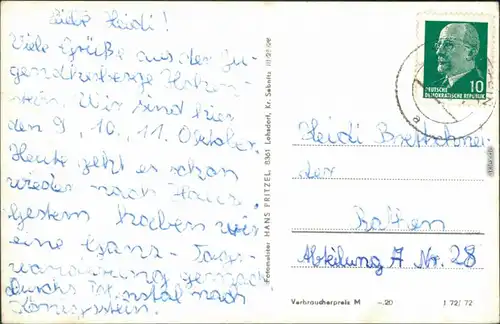 Liebe Heidi!
Viele Grüße aus der Ju-
gendherberge Hohn-
stein. Wir sind hier
den 9., 10., 11. Oktober.
Heute geht es schon
wieder nach Hause.
Gestern haben wir
eine Ganz-Tags-
wanderung gemacht
durchs
Königsstein.
Fotomeister HANS FRITZEL, 8361 Lohsdorf, Kr. Sebnitz
DEUTSCHE
DEMOKRATISCHE REPUBLIK
10
Heidi Bretschnei-
der
Abteilung 7 Nr. 28
Verbraucherpreis M -.20
1 72/72